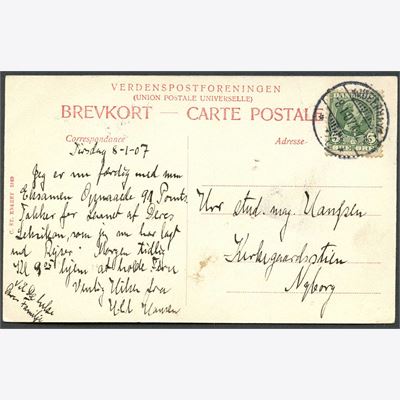 VERDENSPOSTFORENINGEN
(UNION POSTALE UNIVERSELLE)
BREVKORT — CARTE POSTALE
Correspondance
Adresse
Tirsdag 8-1-07
Jeg er nu færdig med min
Eksamen Opnaaede 91 Points.
Takker for Laanet af Deres
Leksikon, som jeg nu har lagt
ned Morgen tidlig
Kl 9 hjem at holde Ferie
Venlig Hilsen fra
Hansen
Hr stud. mag. Hansen
Kirkegaardsstien
Nyborg
5
ØRE